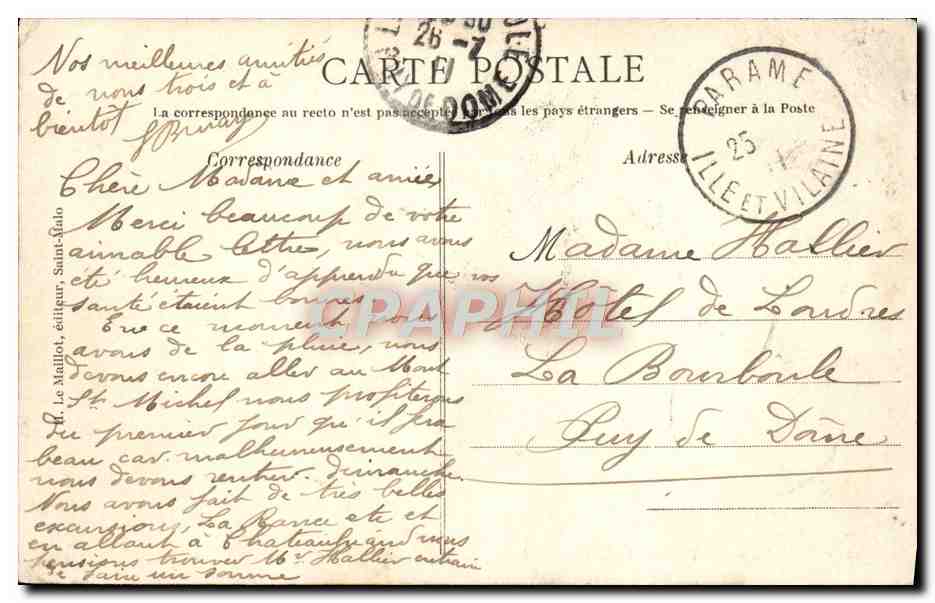 CARTE POSTALE
La correspondance au recto n'est pas acceptée par tous les pays étrangers — Se renseigner à la Poste
Correspondance
Adresse
Nos meilleures amitiés
de nous trois et à
bientôt
Chère Madame et amie
Merci beaucoup de votre
aimable lettre, nous avons
été heureux d'apprendre que vos
santé étaient bonnes
En ce moment, nous
avons de la pluie, nous
devons encore aller au Mont
St Michel nous profiterons
du premier jour qu'il fera
beau car malheureusement
nous devons rentrer dimanche.
Nous avons fait de très belles
excursions, La Rance etc et
en allant à Chateaubriand nous
pensions trouver Mr Hallier entrain
de faire un somme
Madame Hallier
Hôtel de Londres
La Bourboule
Puy de Dôme
PARAME
25
ILLE ET VILAINE
26 -7
DE DOME
H. Le Maillot, éditeur, Saint-Malo
CPAPHIL